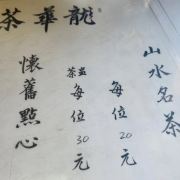 龍華茶
山水名茶
每位20元
盅茶每位30元
懷舊點心